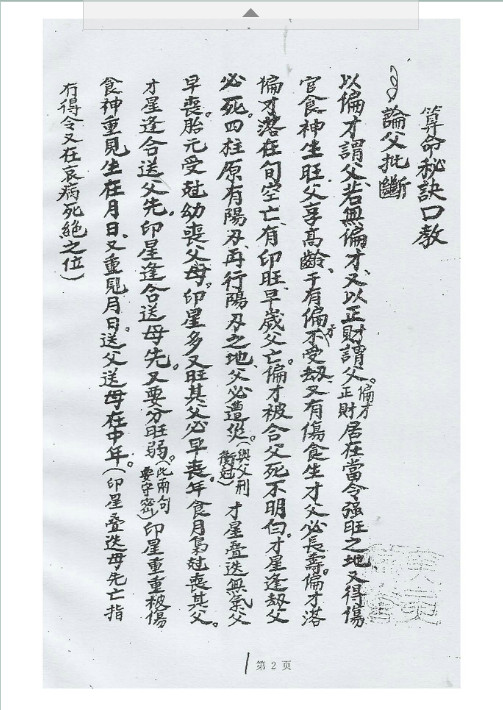 算命秘訣口教
論父批斷
以偏才謂父若無偏才又以正財謂父。偏才正財居在當令强旺之地又得傷
官食神生旺父享高齡、干有偏才不受刼又有傷食生才父必長壽。偏才落
偏才落在旬空亡有印旺早歲父亡。偏才被合父死不明白。才星逢刼父
必死。四柱原有陽刃再行陽刃之地父必遭災(與父刑衝尅)才星叠迭無氣父
早喪。胎元受尅幼喪父母。印星多又旺其父必早喪。年食月梟尅喪其父。
才星逢合送父先。印星逢合送母先。又要分旺弱。(此兩句要守密)印星重重被傷
食神重見生在月日。又重見月日。送父送母在中年。(印星叠迭母先亡指
冇得令又在衰病死絕之位)
第 2 页